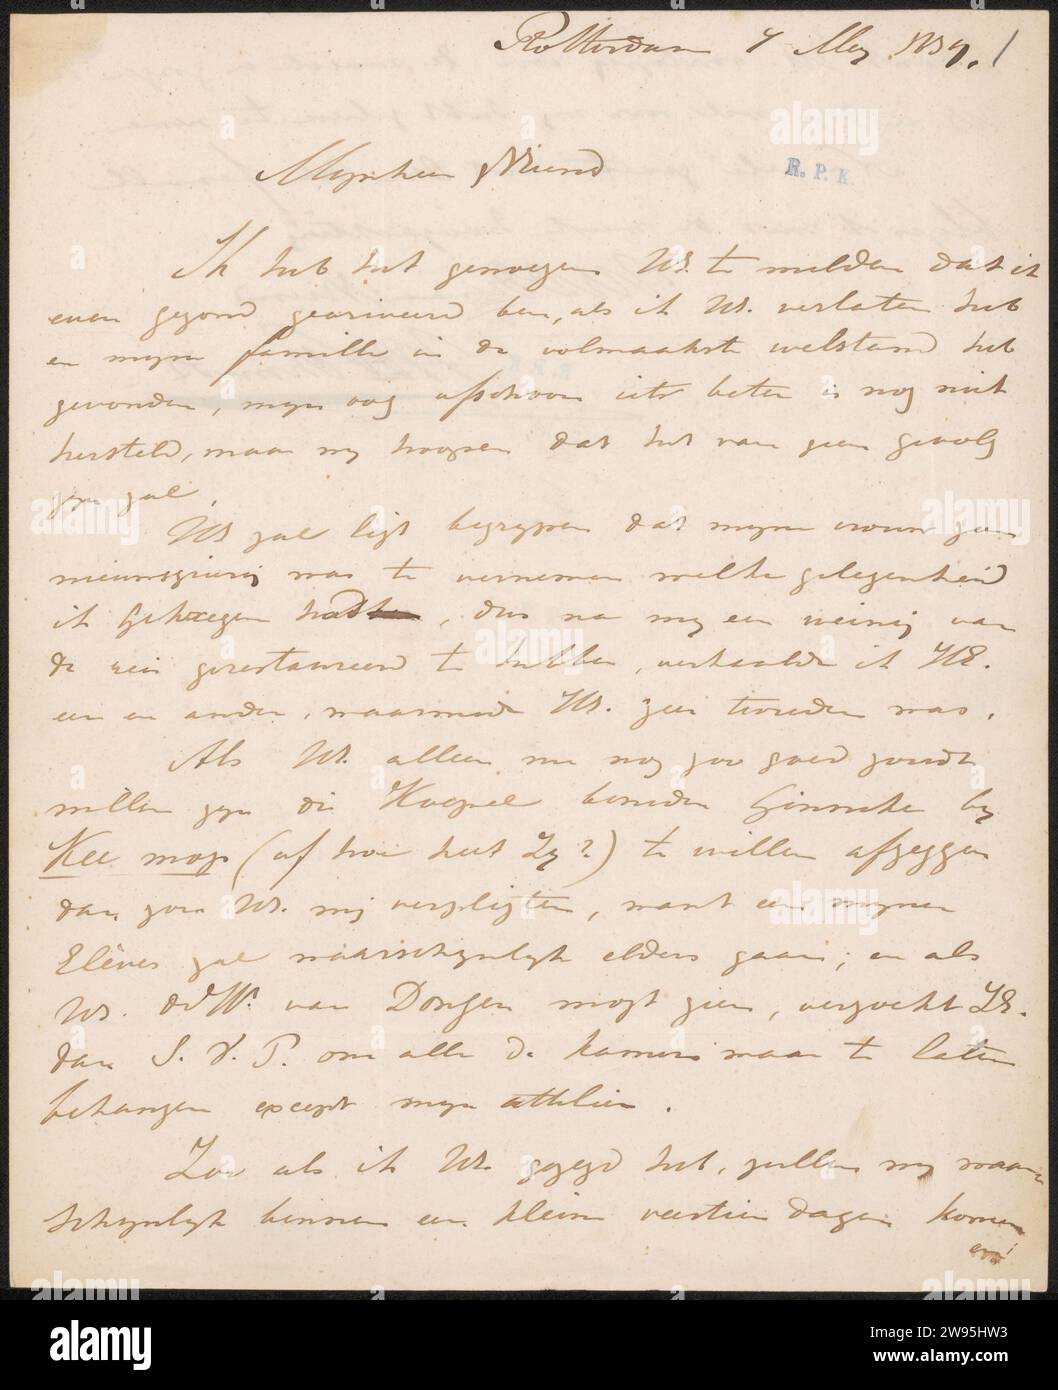 Rotterdam 7 Mey 1839.
Mynheer & Vriend
R. P. K.
Ik heb het genoegen UE. te melden dat ik
even gezond gearriveerd ben, als ik UE. verlaten heb
en myne famille in de volmaakste welstand heb
gevonden, myn oog afschoon iets beter is nog niet
hersteld, maar wy hoopen dat het van geen gevolg
zyn zal.
UE zal ligt begrypen dat myne vrouw zeer
nieuwsgierig was te vernemen welke gelegenheid
ik gekreegen had, dus na my een weinig van
de reis gerestaureerd te hebben, verhaalde ik HE.
een en ander, waarmede UE. zeer tevreden was.
Als UE. alleen nu nog zoo goed zoudt
willen zyn die Koepel beneden Ginneke by
Kee mop (of hoe heet Zy?) te willen afzeggen
dan zou UE. mij verpligten, want een myner
Elèves zal waarschynlyk elders gaan; en als
UE. van Dongen mogt zien, verzoekt ZE.
dan S. V. P. om alle de kamers maar te laten
behangen except myn attelier.
Zoo als ik UE. gezegd heb, zullen wy waar
schynlyk binnen een klein veertien dagen komen
alamy
Image ID: 2N95HW3
www.alamy.com